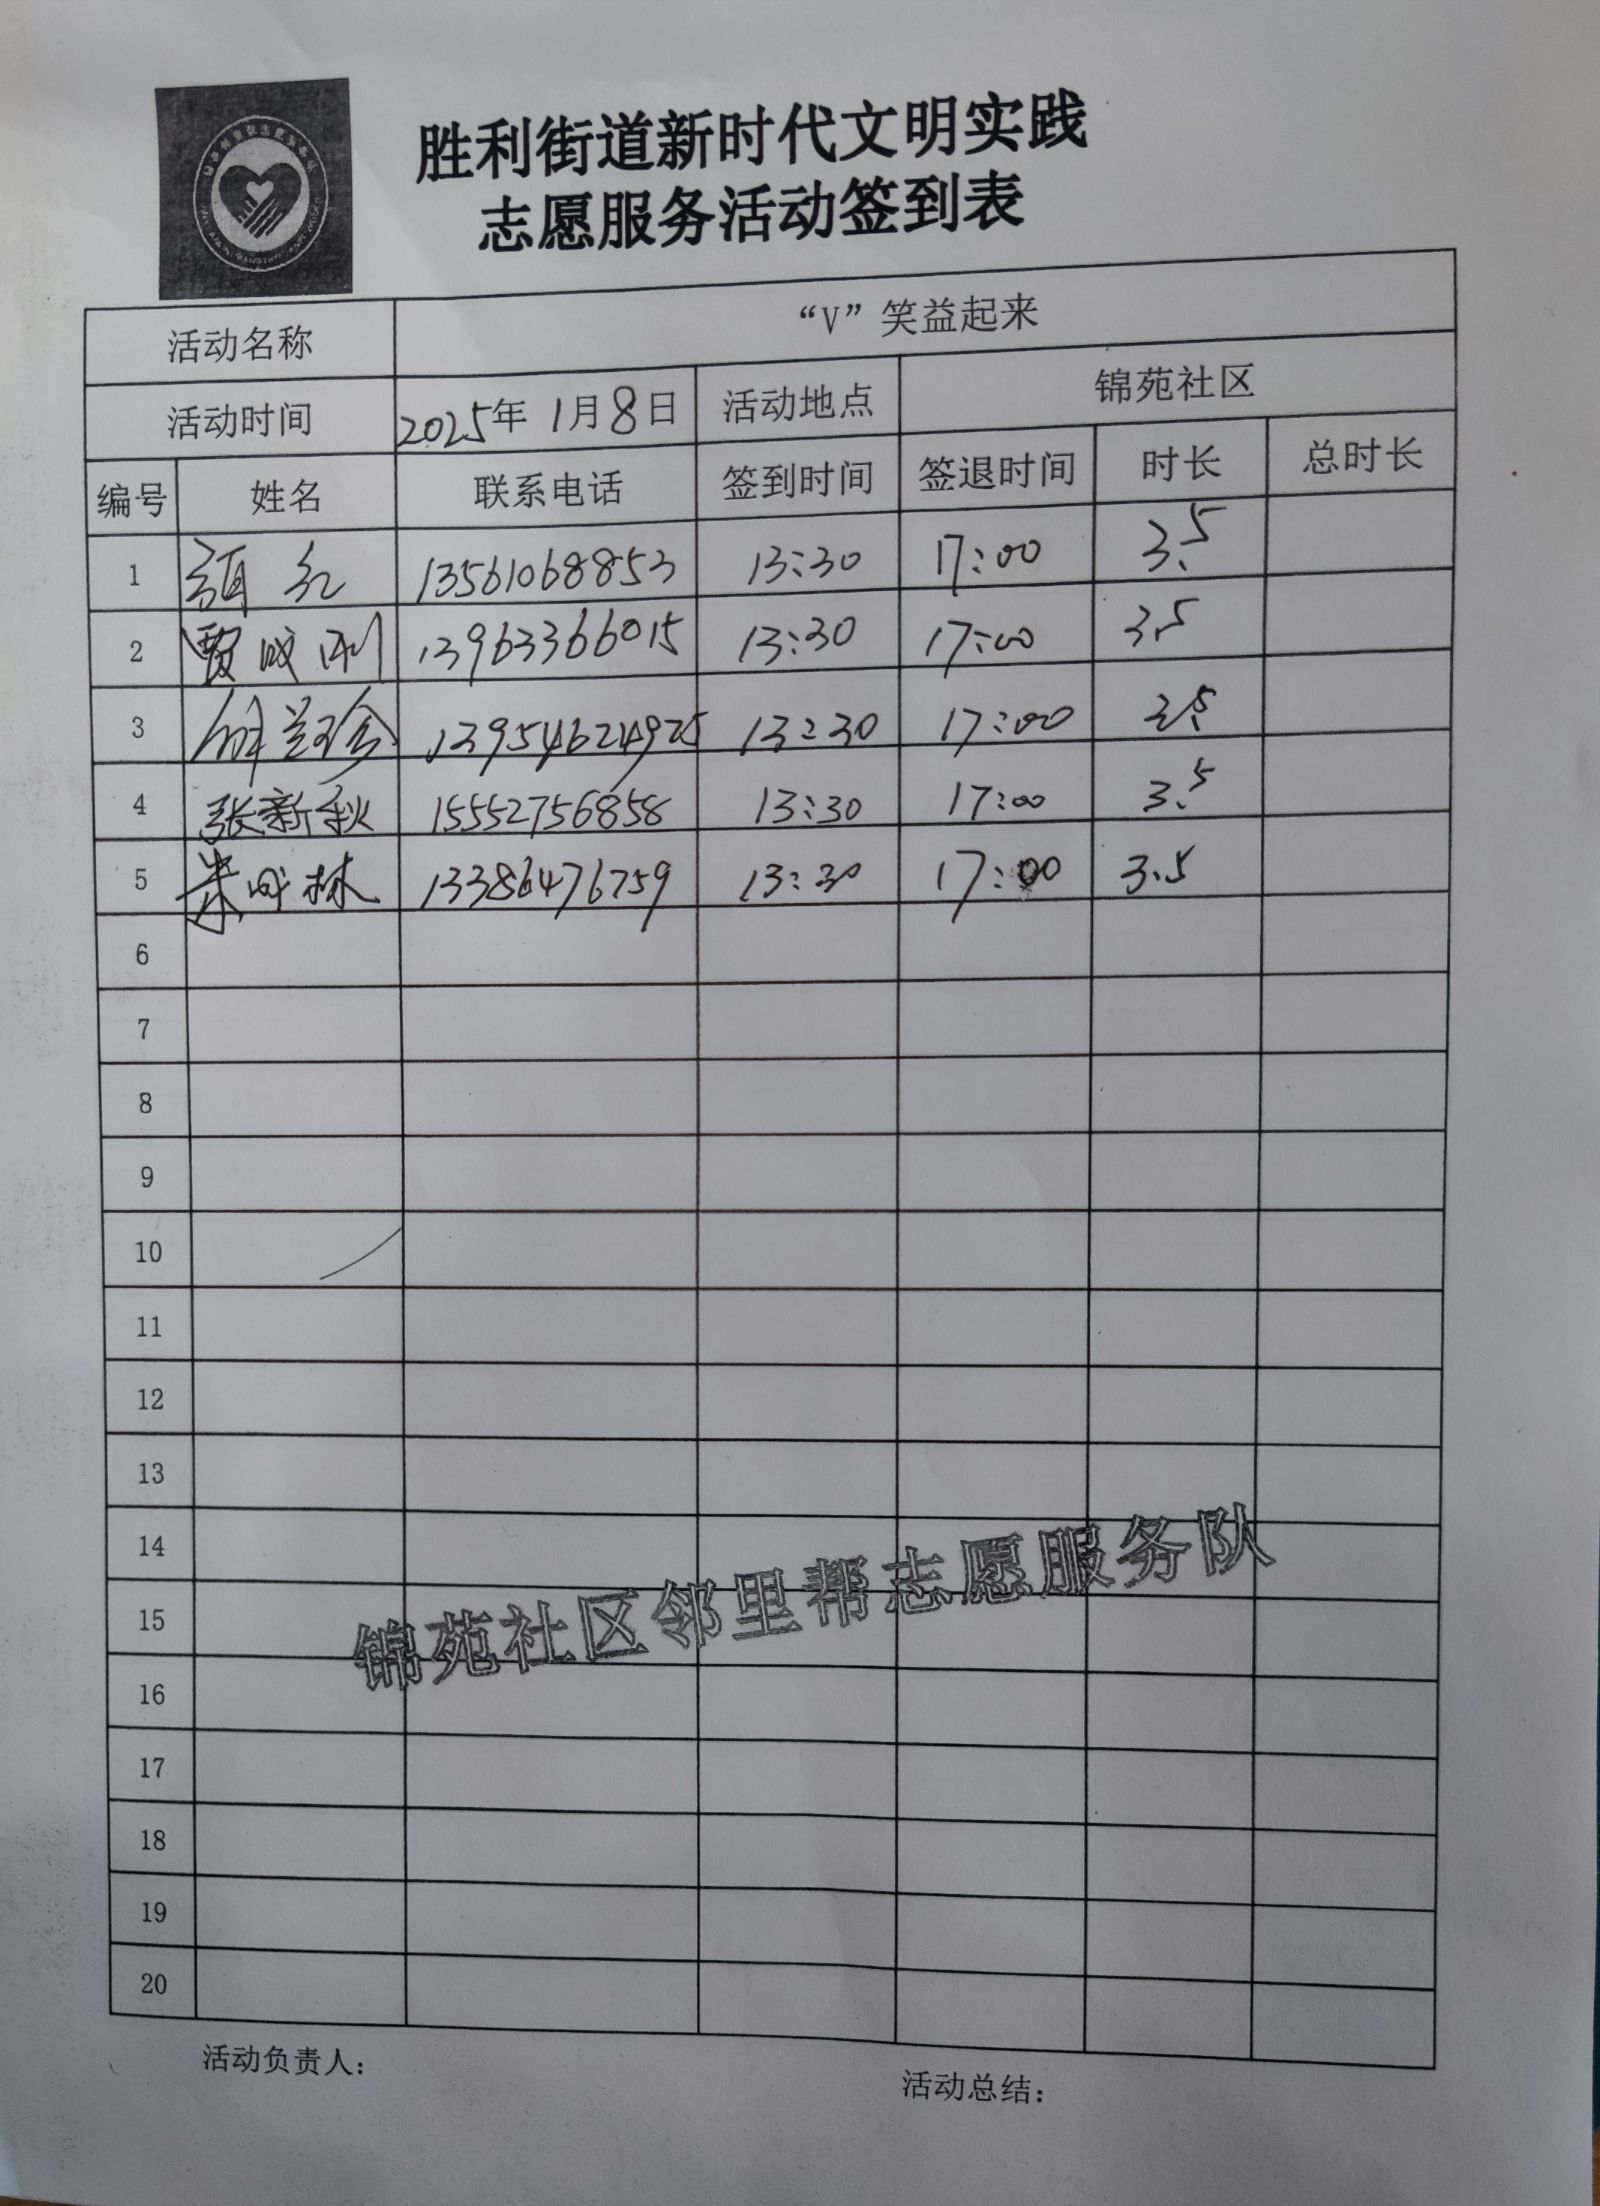 胜利街道新时代文明实践
志愿服务活动签到表
活动名称 “V”笑益起来
活动时间 2025年 1月8日 活动地点 锦苑社区
编号 姓名 联系电话 签到时间 签退时间 时长 总时长
1 13561068853 13:30 17:00 3.5
2 贾成利 13963366015 13:30 17:00 3.5
3 13954624925 13:30 17:00 3.5
4 张新秋 15552756858 13:30 17:00 3.5
5 朱成林 13386476759 13:30 17:00 3.5
6
7
8
9
10
11
12
13
14
15
16
17
18
19
20
锦苑社区邻里帮志愿服务队
活动负责人：
活动总结：